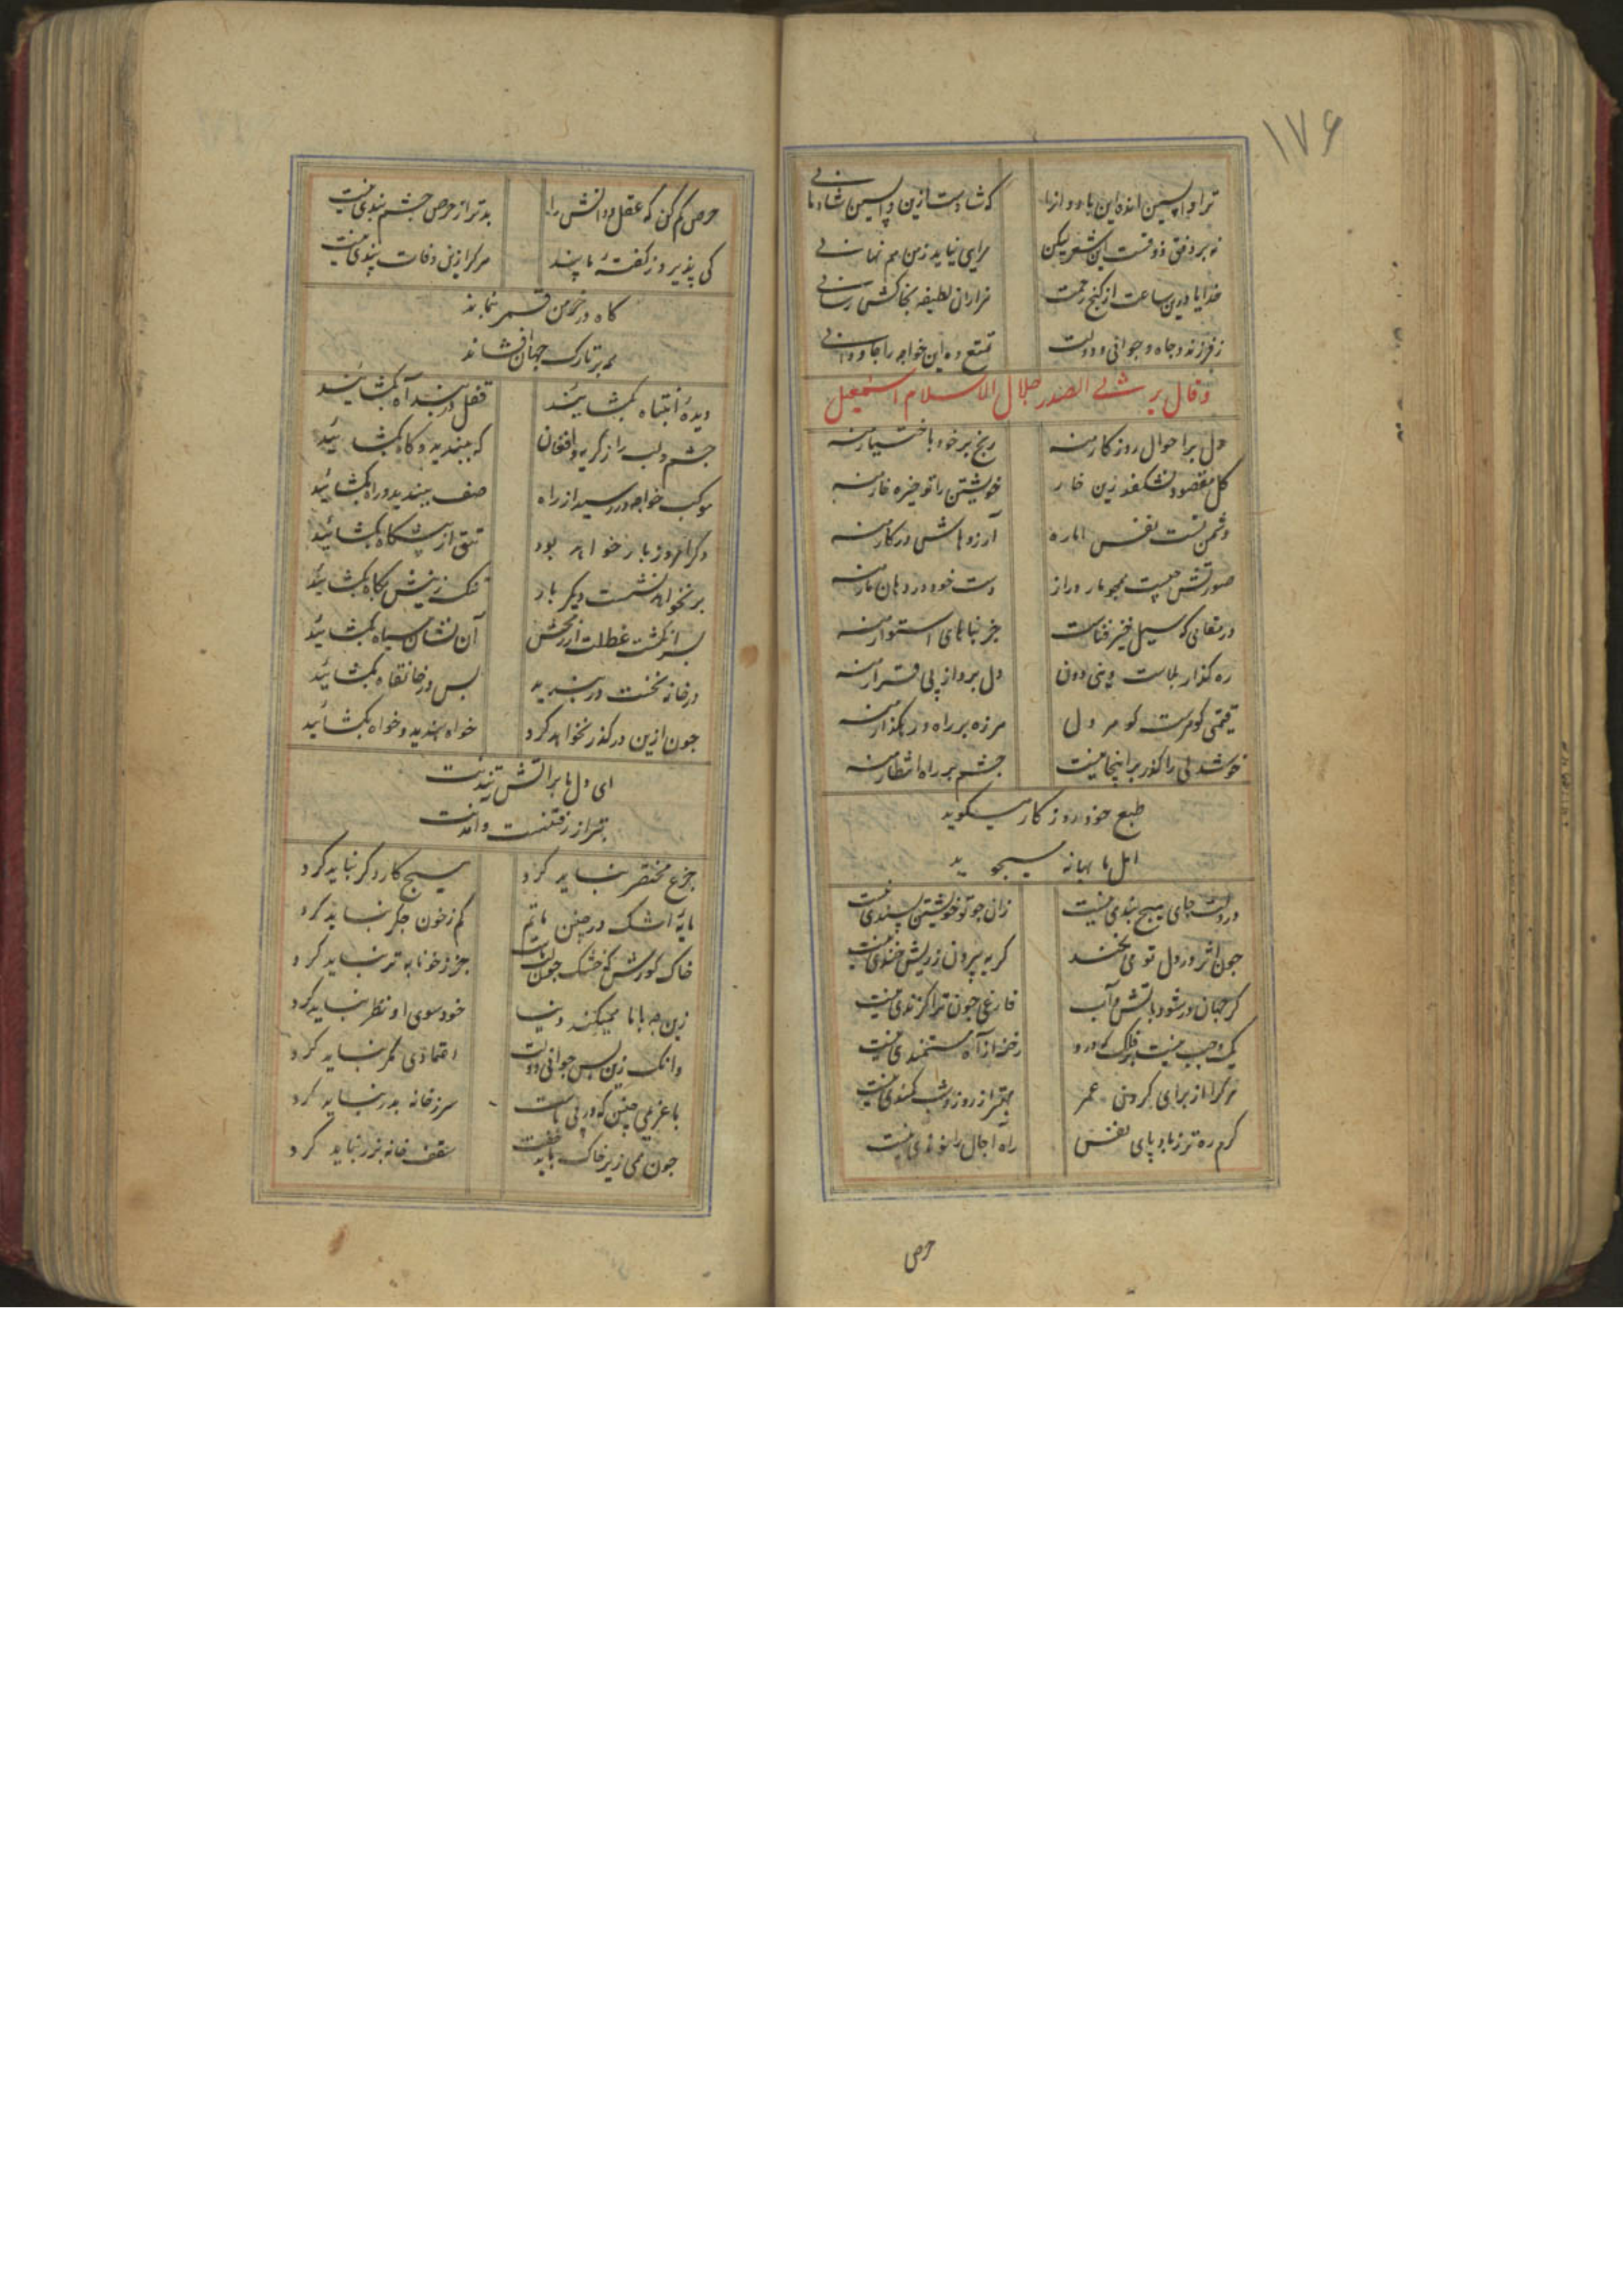 ۱۷۶
ترا واپسین انده این باد و انرا که شادست ازین واپسین شادمانی
نه بر وفق ذوقست این شعر لیکن مرا می نیاید زمن هم نهانی
خدایا درین ساعت از گنج رحمت هزاران لطیفه بخاکش رسانی
ز فرزند و جاه و جوانی و دولت تمتع ده این خواجه را جاودانی
وقال یرثی الصدر جلال الاسلام اسمعیل
دل بر احوال روزکار منه رنج بر خود باختیار منه
کل مقصود نشکفد زین خار خویشتن را تو خیره خار منه
دشمن تست نفس اماره آرزوهاش در کنار منه
صورتش چیست همچو مار دراز دست خود در دهان مار منه
در مقامی که سیل خیز فناست جز بناهای استوار منه
ره کذار بلاست دنیی دون دل برو از پی قرار منه
قیمتی کوهرست کوهر دل هرزه بر راه و رهکذار منه
خوشدلی را کذر بر اینجا نیست چشم بر راه انتظار منه
طبع خود روزکار میکوید
اهل ما بهانه میجوید
در دلت جای هیچ بندی نیست زان چو تو خویشتن پسندی نیست
چون اثر در دل تو می نکند کریه بیرون ز ریش خندی نیست
کر جهان در شود بآتش و آب فارغی چون ترا کزندی نیست
یک وجب نیست بر فلک که درو رخنه از آه مستمندی نیست
مرکرا از برای کردن عمر بهتر از روز و شب کمندی نیست
کرم رو تر ز باد پای نفس راه آجال را نوندی نیست
حرص
حرص کم کن که عقل و دانش را بدتر از حرص چشم بندی نیست
کی پذیرد ز کفتهٔ ما پند هر کرا زین وفات پندی نیست
کاه در خرمن قمر نماند
که بر تارک جهان فشاند
دیدهٔ انتباه بکشایید قفل در بند آه بکشایید
چشم و لب را ز کریه و افغان که ببندید و کاه بکشایید
موکب خواجه در رسید از راه صف ببندید و راه بکشایید
دکر امروز بار خواهد بود تتق از پیشکاه بکشایید
بر نخواهد نشست دیکر بار تنک زینش بکاه بکشایید
در خانه نخست در بندید پس در خانقاه بکشایید
چون ازین در کذر نخواهد کرد خواه بندید و خواه بکشایید
ای دل ما بر آتش تیزت
بتر از رفتنست وامدنت
جزع مختصر نباید کرد هیچ کار دکر نباید کرد
مایهٔ اشک در چنین ماتم کم ز خون جکر نباید کرد
خاک کورش که خشک چون لب ماست جز ز خونابه تر نباید کرد
زین چه با ما همیکند دنیا خود سوی او نظر نباید کرد
وانک زین پس جوانی و دولت اعتمادی مکر نباید کرد
با غریمی چنین که در پی ماست سر ز خانه بدر نباید کرد
چون همی زیر خاک باید خفت سقف خانه بزر نباید کرد